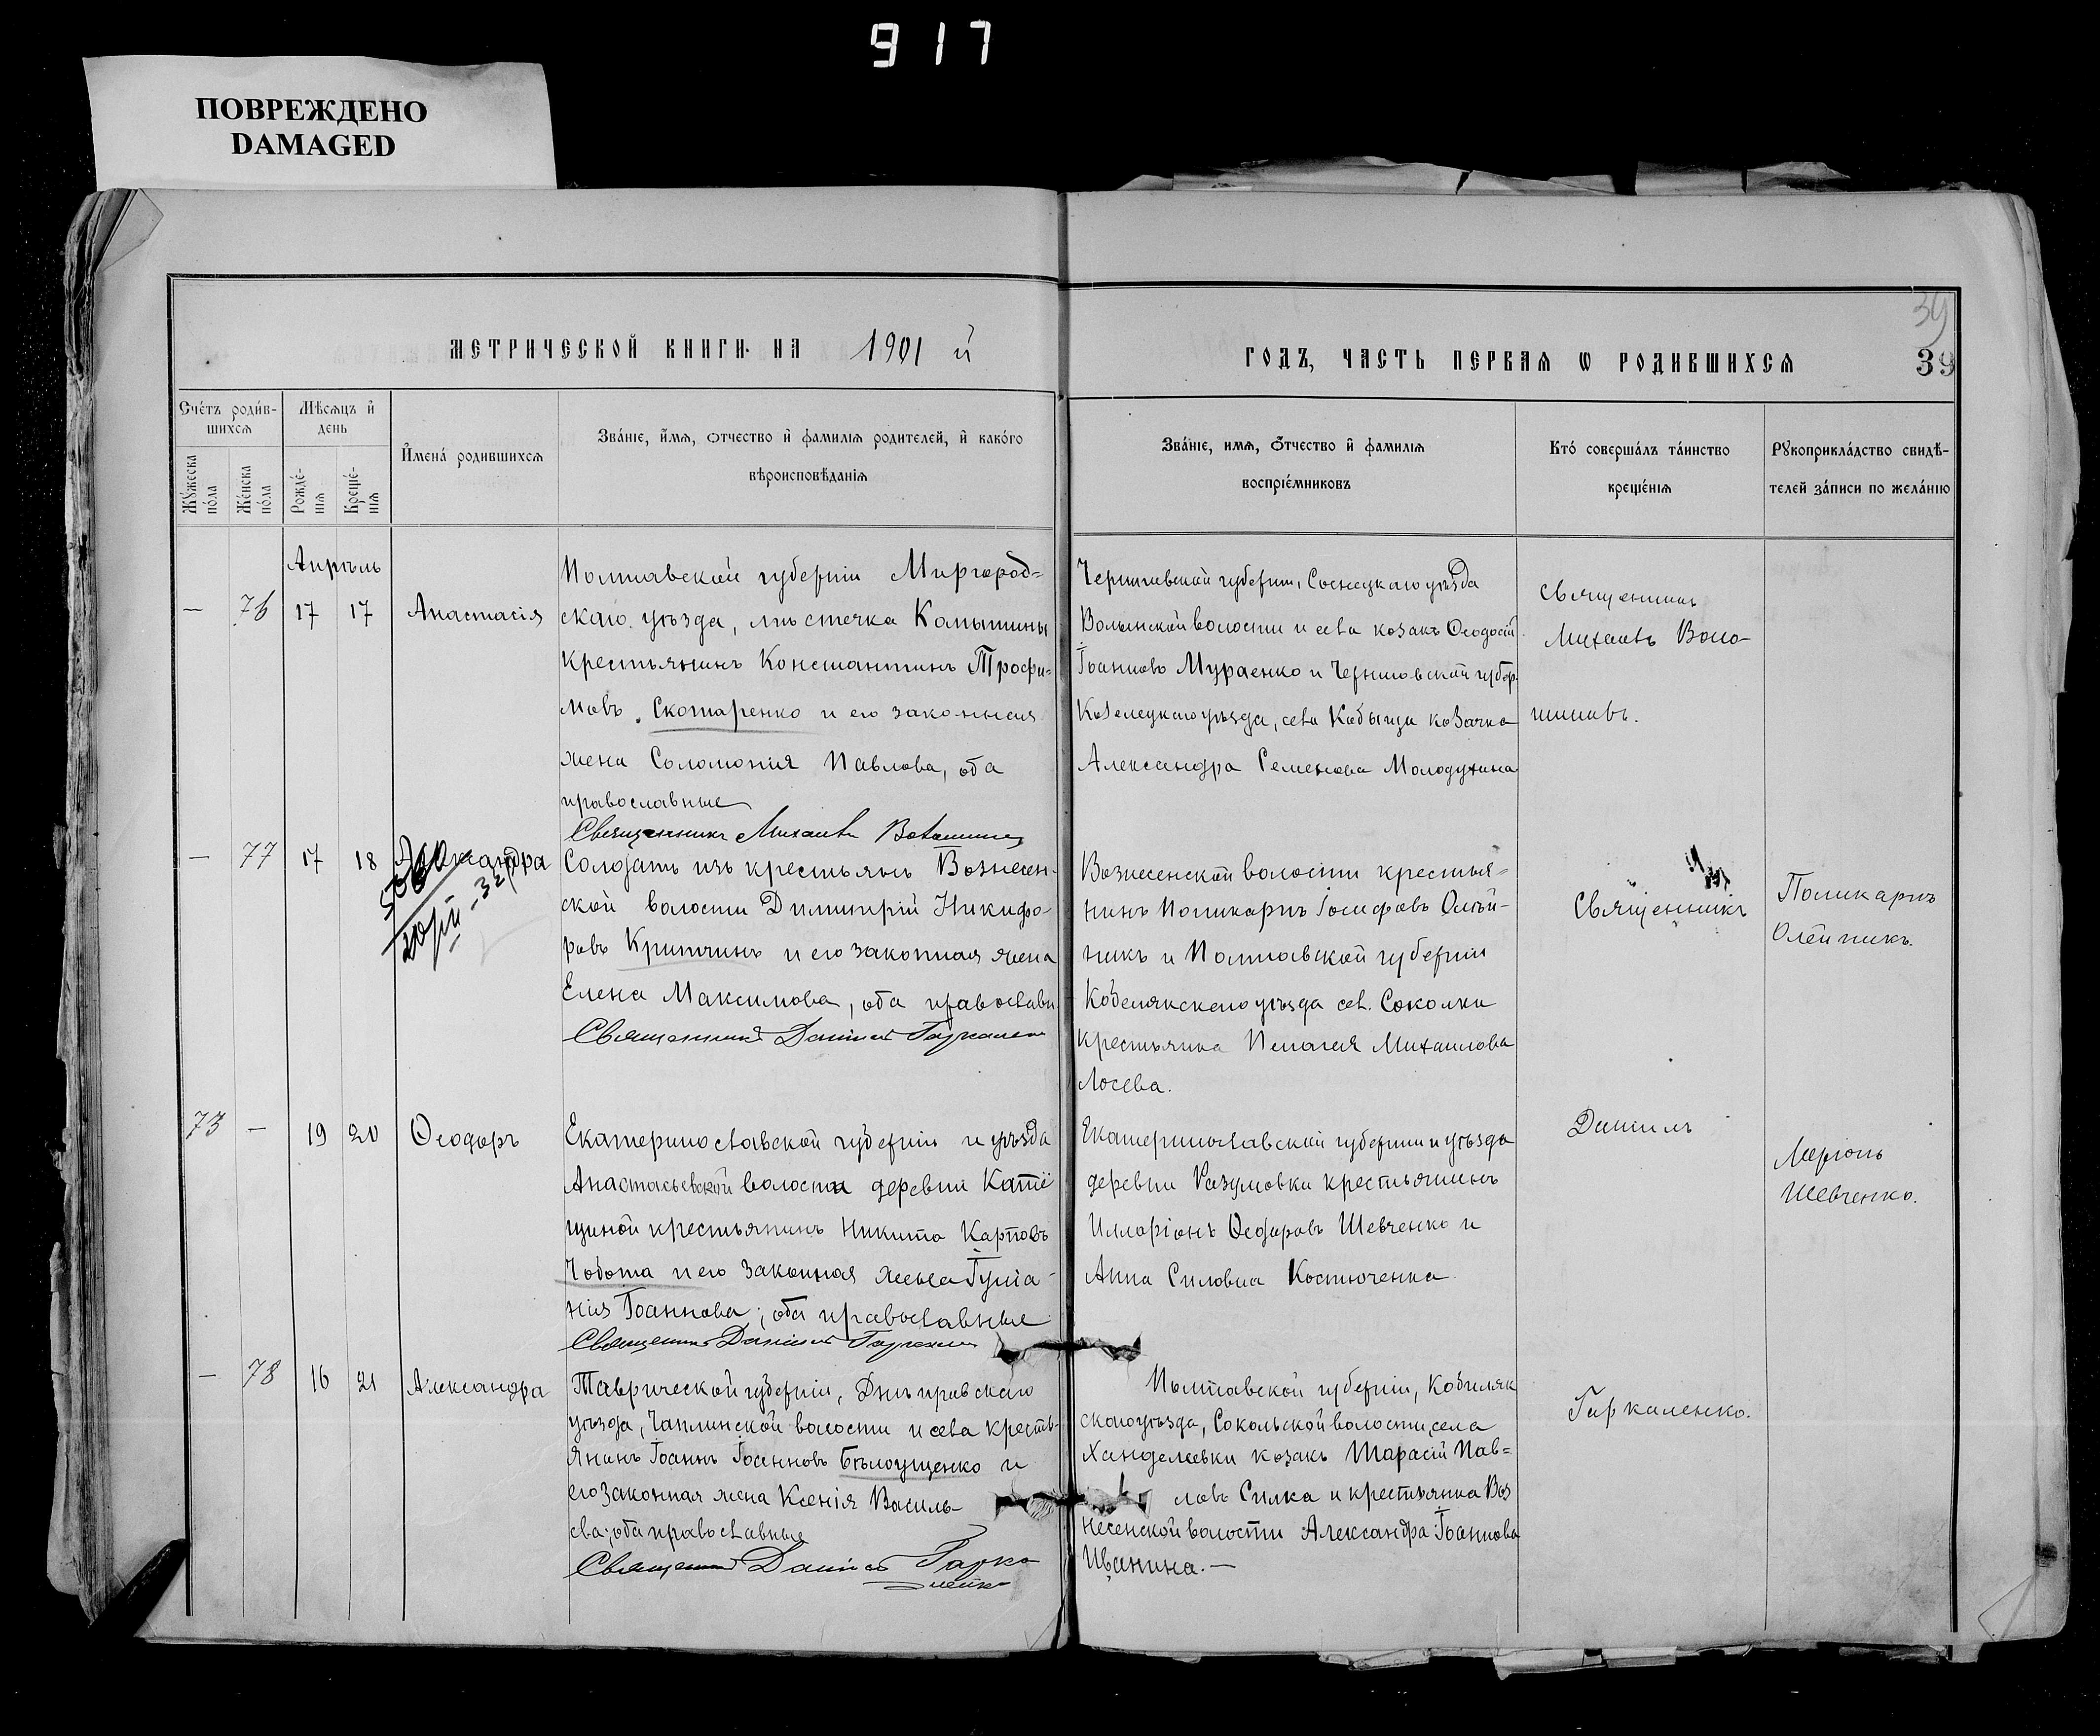 917
ПОВРЕЖДЕНО
DAMAGED
МЕТРИЧЕСКОЙ КНИГИ НА 1901 й
ГОДЪ, ЧАСТЬ ПЕРВАЯ Ѡ РОДИВШИХСЯ
39
39
Счётъ родив-
шихся
Мѣсяцъ и
день
Мужеска
пола
Женска
пола
Рожде-
нія
Креще-
нія
Имена родившихся
Званіе, имя, отчество и фамилія родителей, и какого
вѣроисповѣданія
Званіе, имя, отчество и фамилія
воспріемниковъ
Кто совершалъ таинство
крещенія
Рукоприкладство свидѣ-
телей записи по желанію
Апрѣль
— 76 17 17 Анастасія
Полтавской губерніи Миргород=
скаго уѣзда, мѣстечка Комышны
крестьянинъ Константинъ Трофи=
мовъ Скотаренко и его законная
жена Соломонія Павлова, оба
православные
Священникъ Михаилъ
Черниговской губерніи, Сосницкаго уѣзда
Волынской волости и села козакъ Ѳеодосій
Іоанновъ Мураенко и Черниговской губер.
Козелецкаго уѣзда, села Кобыща козачка
Александра Семенова Молодухина
Священникъ
Михаилъ Воло-
шиновъ.
— 77 17 18 Александра
Солдатъ изъ крестьянъ Вознесен-
ской волости Димитрій Никифо-
ровъ Критчинъ и его законная жена
Елена Максимова, оба православн.
Священникъ Даніилъ Гаркаленко
Вознесенской волости крестья=
нинъ Поликарпъ Іосифовъ Олѣй-
никъ и Полтавской губерніи
Кобелякскаго уѣзда сел. Соколки
крестьянка Пелагея Михаилова
Лосева.
Священникъ
Поликарпъ
Олейникъ.
73 — 19 20 Ѳеодоръ
Екатеринославской губерніи и уѣзда
Анастасьевской волости деревни
крестьянинъ Никита Карповъ
Чобота и его законная жена Іуліа-
нія Іоаннова; оба православные
Священникъ Даніилъ Гаркаленко
Екатеринославской губерніи и уѣзда
деревни Разумовки крестьянинъ
Илларіонъ Ѳеодоровъ Шевченко и
Анна Силовна Костюченка
Даніилъ
Ларіонъ
Шевченко.
— 78 16 21 Александра
Таврической губерніи, Днѣпровскаго
уѣзда, Чаплинской волости и села кресть-
янинъ Іоаннъ Іоанновъ Бѣлоущенко и
его законная жена Ксенія Василь-
ева; оба православные
Священникъ Даніилъ Гарка-
ленко
Полтавской губерніи, Кобеляк
скаго уѣзда, Сокольской волости, села
Ханделеевки козакъ Тарасій Пав=
ловъ Силка и крестьянка Воз
несенской волости Александра Іоаннова
Иванина.—
Гаркаленко.